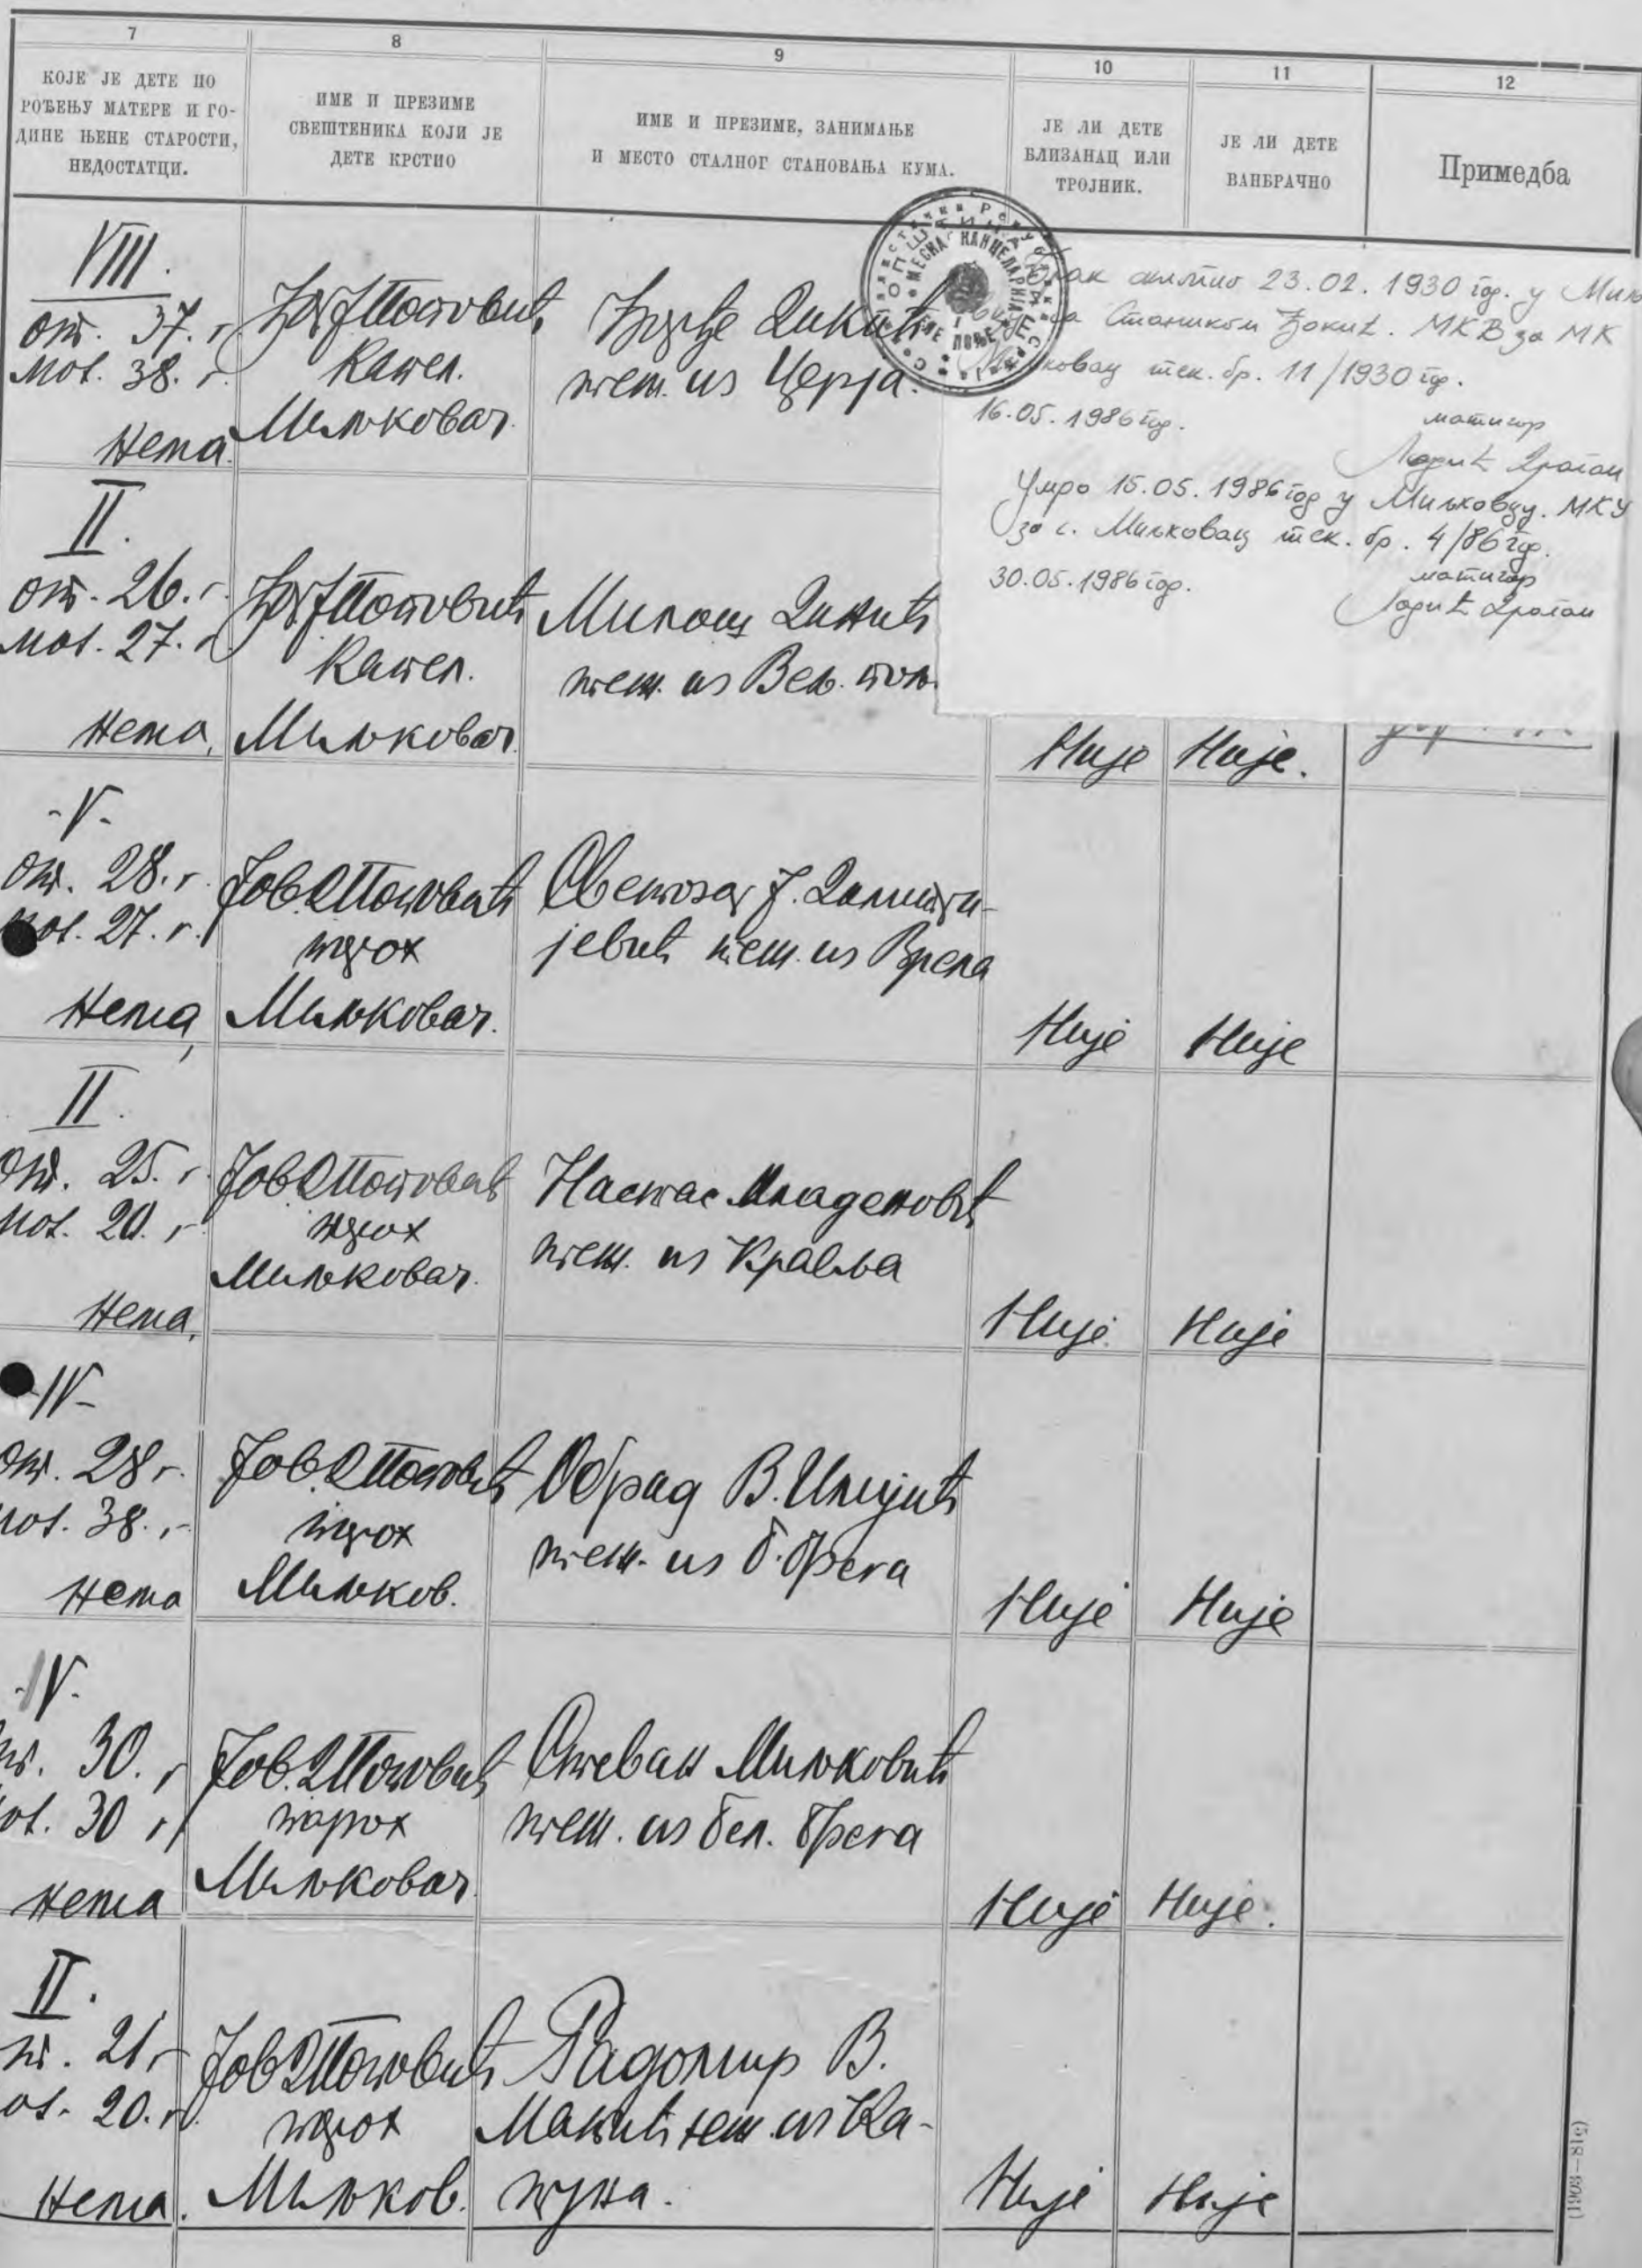 7
8
9
10
11
12
КОЈЕ ЈЕ ДЕТЕ ПО
РОЂЕЊУ МАТЕРЕ И ГО-
ДИНЕ ЊЕНЕ СТАРОСТИ,
НЕДОСТАТЦИ.
ИМЕ И ПРЕЗИМЕ
СВЕШТЕНИКА КОЈИ ЈЕ
ДЕТЕ КРСТИО
ИМЕ И ПРЕЗИМЕ, ЗАНИМАЊЕ
И МЕСТО СТАЛНОГ СТАНОВАЊА КУМА.
ЈЕ ЛИ ДЕТЕ
БЛИЗАНАЦ ИЛИ
ТРОЈНИК.
ЈЕ ЛИ ДЕТЕ
ВАНБРАЧНО
Примедба
VIII.
от. 37. г.
мат. 38. г.
Нема.
Поповић
Капел.
Миљковач.
Ђорђе
теж. из Церја.
МЕСНА КАНЦЕЛАРИЈА
23.02.1930 год. у
Ђокић. МКВ за МК
тек. бр. 11/1930 год.
16.05.1986 год.
матичар
Драган
Умро 15.05.1986 год у Миљковцу. МКУ
за с. Миљковац тек. бр. 4/86 год.
30.05.1986 год.
матичар
Драган
II.
от. 26. г.
мат. 27. г.
Нема,
Поповић
Капел.
Миљковач.
Милош
теж. из Вел. пољ.
Није
Није.
-V-
от. 28. г.
27. г.
Нема,
Јов. Поповић
парох
Миљковач.
Светозар Ј. Димитри-
јевић теж. из Врела
Није
Није
II.
от. 25. г.
мат. 20. г.
Нема,
Јов. Поповић
парох
Миљковач.
Настас Младеновић
теж. из Кравља
Није.
Није
-IV-
от. 28 г.
38. г.
Нема
Јов. Поповић
парох
Миљков.
Обрад В. Илијић
теж. из б. брега
Није
Није
-IV-
30. г
30 г
Нема
Јов. Поповић
парох
Миљковач
Стеван Миљковић
теж. из бел. брега
Није
Није.
II.
21 г
20. г.
Нема.
Јов. Поповић
парох
Миљков.
Радомир В.
теж. из Ка-
пуна.
Није
Није
(1903—819)